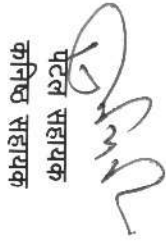 पटल सहायक
कनिष्ठ सहायक